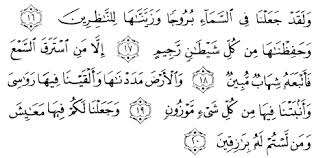 وَلَقَدْ جَعَلْنَا فِي السَّمَاءِ بُرُوجًا وَزَيَّنَّاهَا لِلنَّاظِرِينَ ١٦
وَحَفِظْنَاهَا مِن كُلِّ شَيْطَانٍ رَّجِيمٍ ١٧ إِلَّا مَنِ اسْتَرَقَ السَّمْعَ
فَأَتْبَعَهُ شِهَابٌ مُّبِينٌ ١٨ وَالْأَرْضَ مَدَدْنَاهَا وَأَلْقَيْنَا فِيهَا رَوَاسِيَ
وَأَنبَتْنَا فِيهَا مِن كُلِّ شَيْءٍ مَّوْزُونٍ ١٩ وَجَعَلْنَا لَكُمْ فِيهَا مَعَايِشَ
وَمَن لَّسْتُمْ لَهُ بِرَازِقِينَ ٢٠